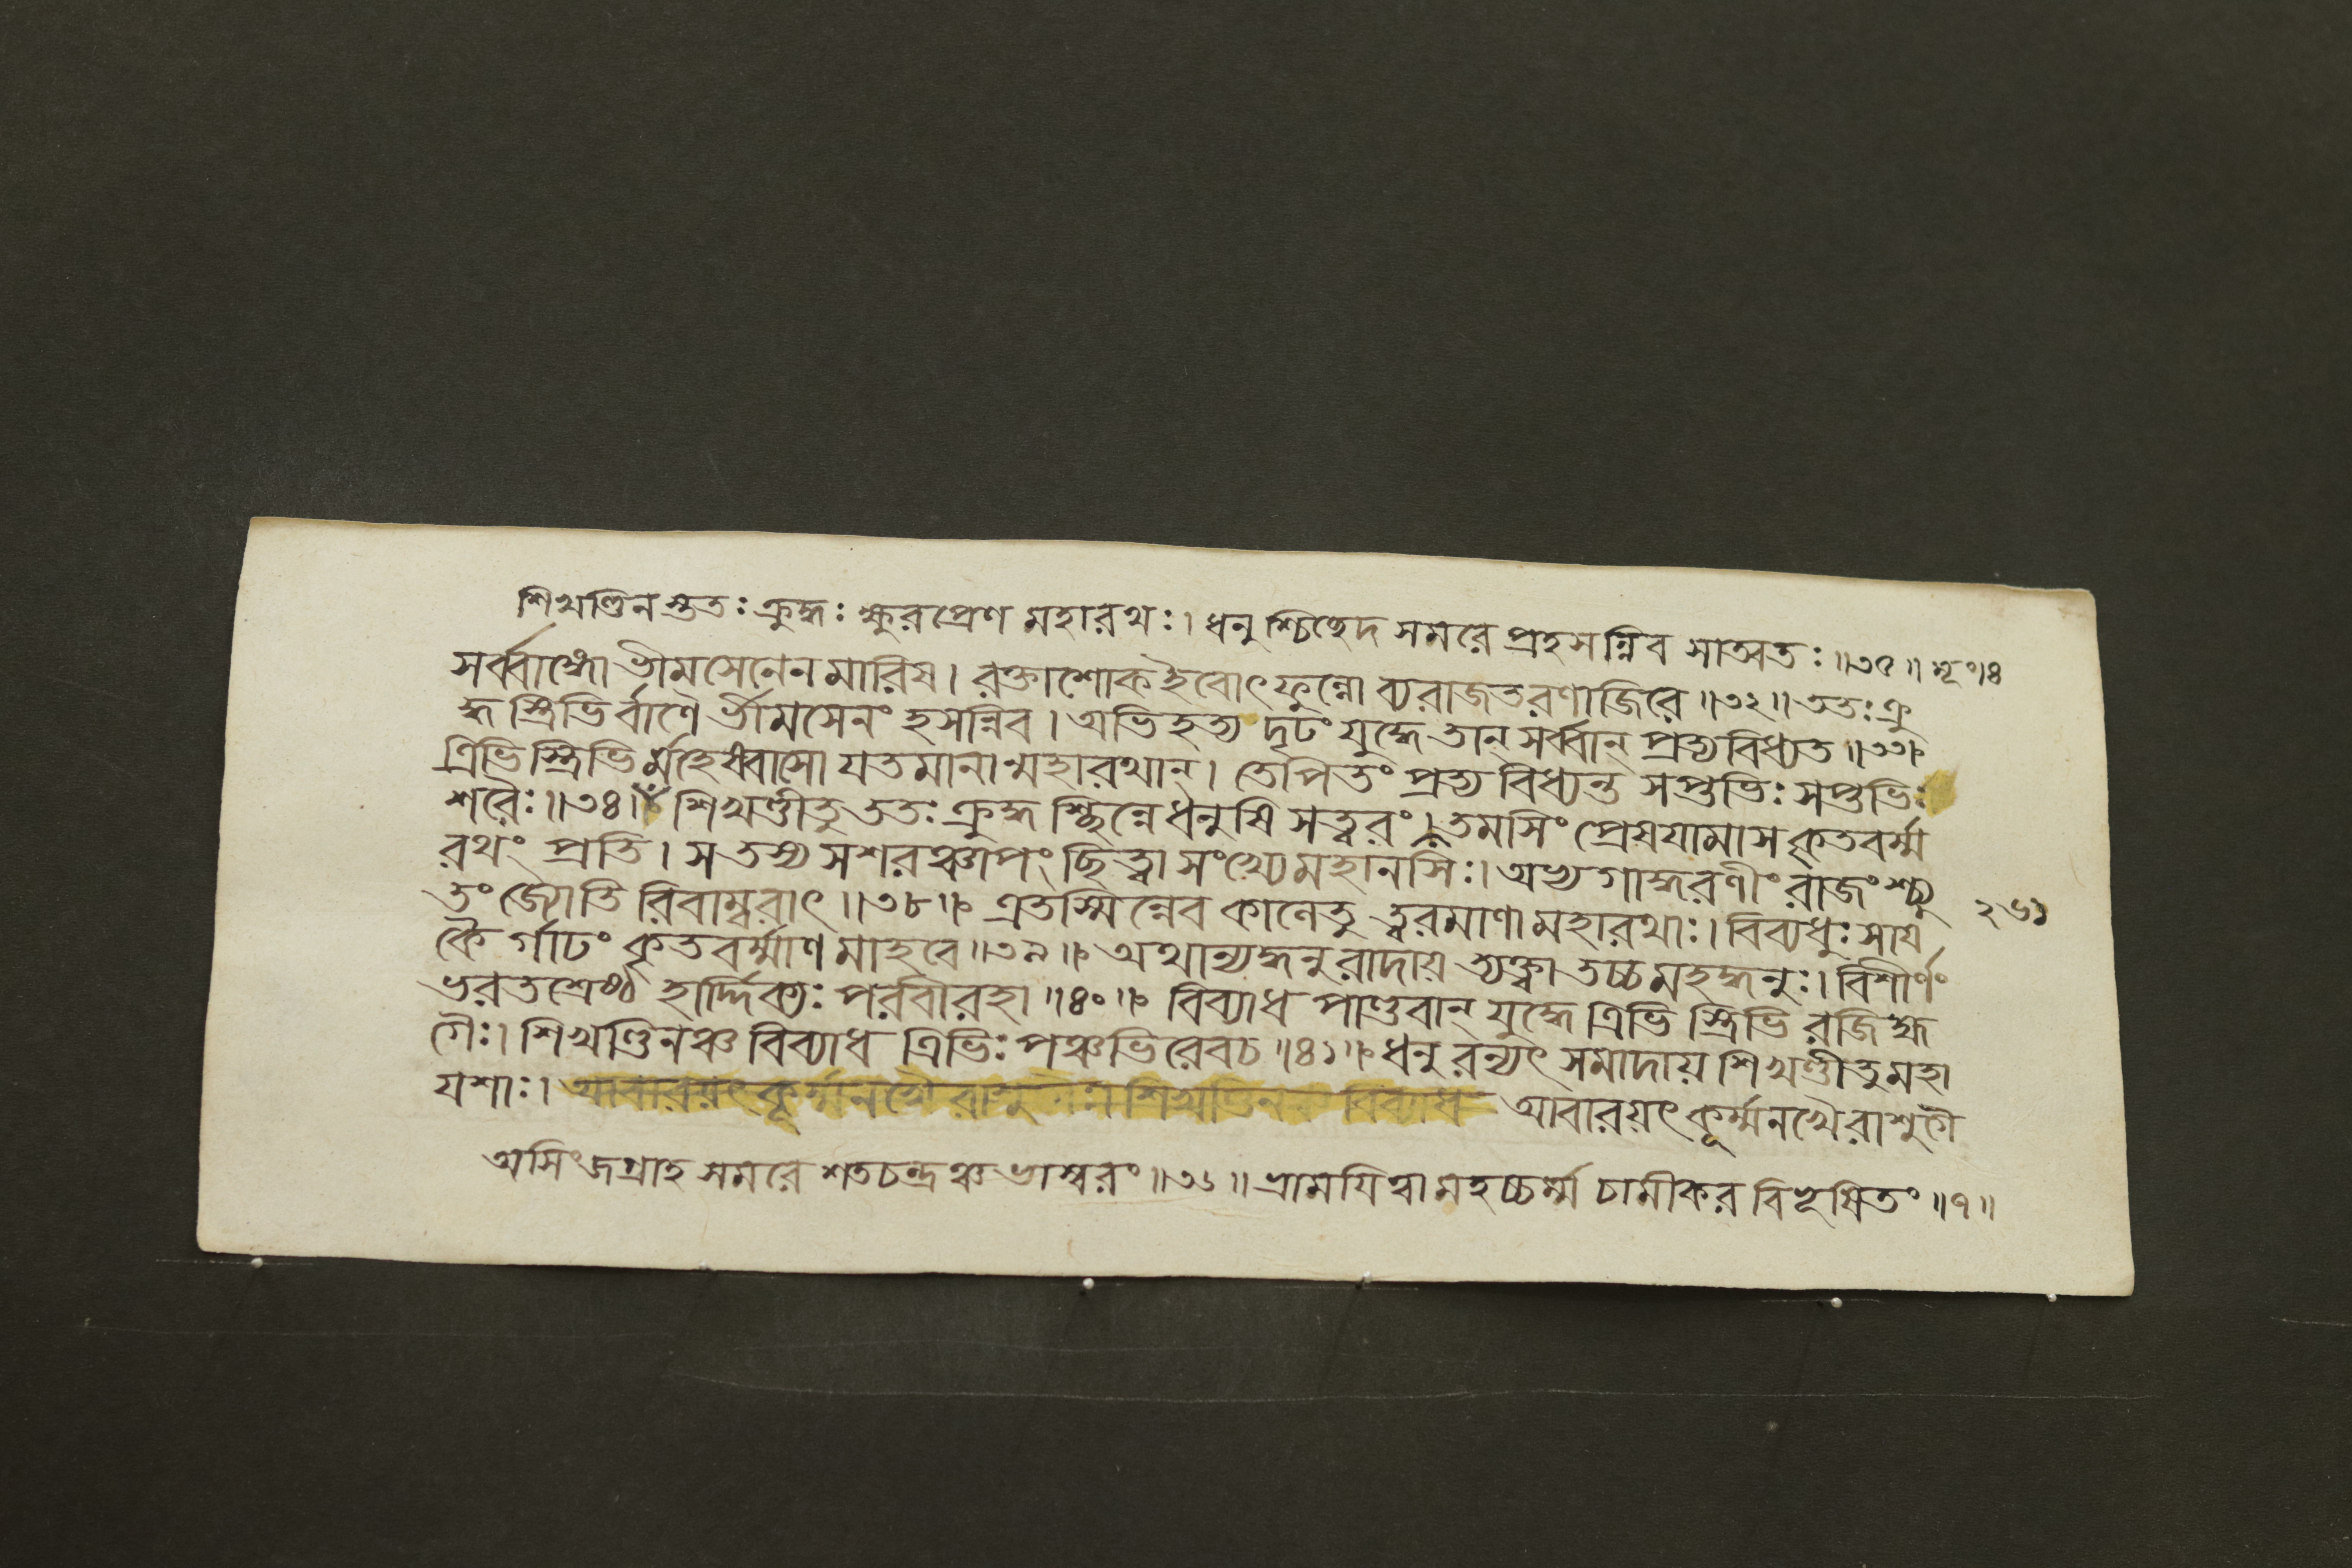 শিখণ্ডিনস্তুতঃ ক্রুদ্ধঃ ক্ষুরপ্রেণ মহারথঃ। ধনুশ্চিচ্ছেদ সমরে প্রহসন্নিব সাত্বতঃ॥৩৫॥
সর্ব্বাঙ্গো ভীমসেনেন মারিষ। রক্তাশোক ইবোৎফুল্লো ব্যরাজত রণাজিরে॥৩২॥ ততঃ ক্রু
দ্ধ স্ত্রিভির্বাণৈ র্ভীমসেনং হসন্নিব। অভিহত্য দৃঢং যুদ্ধে তান্ সর্ব্বান্ প্রত্যবিধ্যত॥৩৩॥
ত্রিভি স্ত্রিভি র্মহেষ্বাসো যতমানান্মহারথান্। তেপিতং প্রত্যবিধ্যন্ত সপ্তভিঃ সপ্তভিঃ
শরৈঃ॥৩৪॥ শিখণ্ডীতু ততঃ ক্রুদ্ধ শ্ছিন্নে ধনুষি সত্বরং। তমসিং প্রেষযামাস কৃতবর্ম্ম
রথং প্রতি। স তস্য সশরঞ্চাপং ছিত্বা সংখ্যে মহানসিঃ। অভ্যগাদ্ধরণীং রাজং শ্চ্যু
তং জ্যোতি রিবাম্বরাৎ॥৩৮॥ এতস্মিন্নেব কালেতু ত্বরমাণা মহারথাঃ। বিব্যধুঃ সায
কৈ র্গাঢং কৃতবর্ম্মাণ মাহবে॥৩৯॥ অথান্যদ্ধনুরাদায় ত্যক্ত্বা তচ্চ মহদ্ধনুঃ। বিশীর্ণং
ভরতশ্রেষ্ঠ হার্দ্দিক্যঃ পরবীরহা॥৪০॥ বিব্যাধ পাণ্ডবান্ যুদ্ধে ত্রিভি স্ত্রিভি রজিহ্ম
গৈঃ। শিখণ্ডিনঞ্চ বিব্যাধ ত্রিভিঃ পঞ্চভিরেবচ॥৪১॥ ধনু রন্যৎ সমাদায় শিখণ্ডীতু মহা
যশাঃ। আবারয়ৎ কূর্ম্মনখৈ রাশু শিখণ্ডিন বিব্যাধ আবারয়ৎ কূর্ম্মনখৈরাশুগৈ
২৬১
অসিং জগ্রাহ সমরে শতচন্দ্রঞ্চ ভাস্বরং॥৩৬॥ ভ্রাময়িত্বা মহচ্চর্ম্ম চামীকর বিভূষিতং॥৭॥